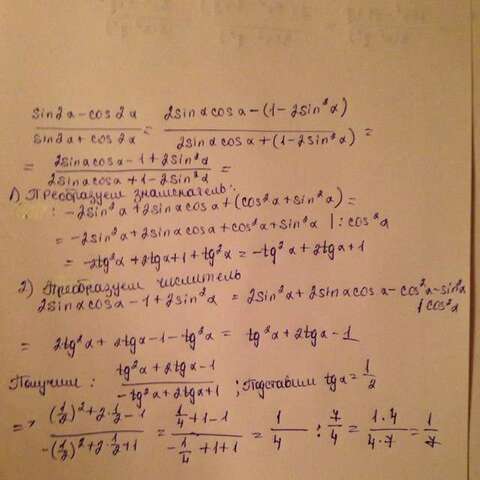 (sin2α − cos2α)/(sin2α + cos2α) = (2sinαcosα − (1 − 2sin²α))/(2sinαcosα + (1 − 2sin²α)) =
= (2sinαcosα − 1 + 2sin²α)/(2sinαcosα + 1 − 2sin²α) =
1) Преобразуем знаменатель:
: −2sin²α + 2sinαcosα + (cos²α + sin²α) =
= −2sin²α + 2sinαcosα + cos²α + sin²α |: cos²α
= −2tg²α + 2tgα + 1 + tg²α = −tg²α + 2tgα + 1
2) Преобразуем числитель
2sinαcosα − 1 + 2sin²α = 2sin²α + 2sinαcosα − cos²α − sin²α
/cos²α
= 2tg²α + 2tgα − 1 − tg²α = tg²α + 2tgα − 1
Получим: (tg²α + 2tgα − 1)/(−tg²α + 2tgα + 1); Подставим tgα = 1/2
=> ((1/2)² + 2·1/2 − 1)/(−(1/2)² + 2·1/2 + 1) = (1/4 + 1 − 1)/(−1/4 + 1 + 1) = 1/4 : 7/4 = (1·4)/(4·7) = 1/7